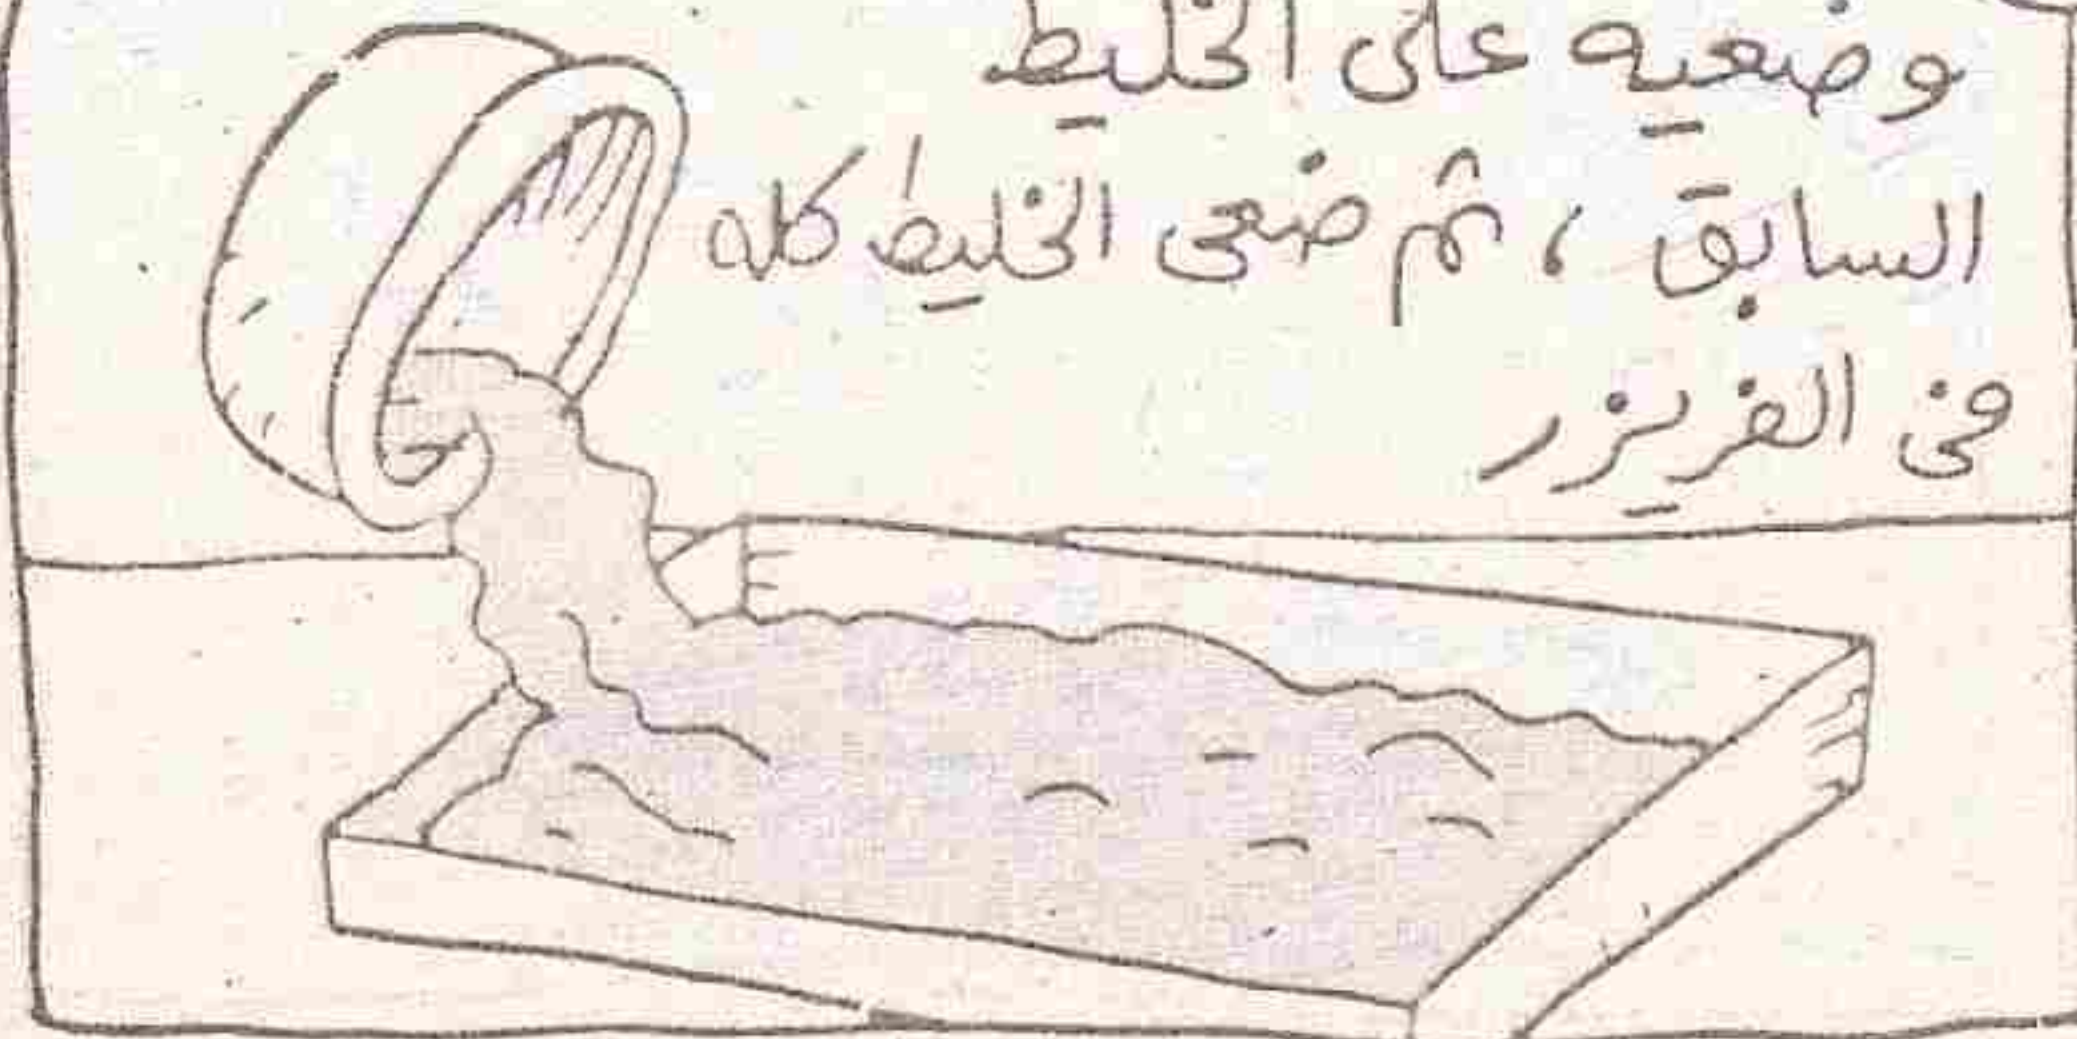 وضعيه على الخليط
السابق ، ثم ضعى الخليط كله
فى الفريزر